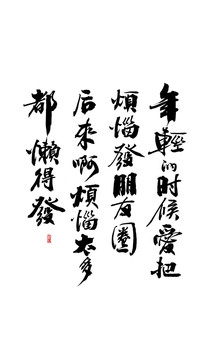 年輕的时候愛把
煩惱發朋友圈
后來啊煩惱太多
都懶得發